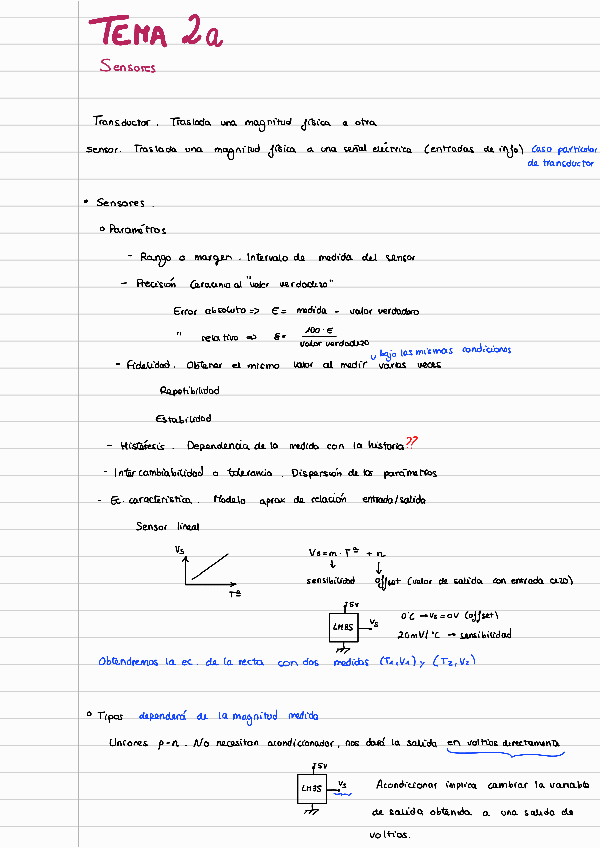 TEMA 2a
Sensores
Transductor. Traslada una magnitud física a otra
sensor. Traslada una magnitud física a una señal eléctrica (entradas de info) caso particular
de transductor
• Sensores.
° Parámetros
- Rango o margen. Intervalo de medida del sensor
- Precisión Cercanía al "valor verdadero"
Error absoluto => E = medida - valor verdadero
" relativo => ε = 100·E / valor verdadero
bajo las mismas condiciones
- Fidelidad. Obtener el mismo valor al medir varias veces
Repetibilidad
Estabilidad
- Histéresis. Dependencia de la medida con la historia??
- Intercambiabilidad o tolerancia. Dispersión de los parámetros
- Ec. característica. Modelo aprox de relación entrada/salida
Sensor lineal
Vs
Tª
Vs = m · Tª + n
sensibilidad offset (valor de salida con entrada cero)
5V
LM35 Vs
0°C → Vs = 0V (offset)
20mV/°C → sensibilidad
Obtendremos la ec. de la recta con dos medidas (T1,V1) y (T2,V2)
° Tipos dependerá de la magnitud medida
Uniones p-n. No necesitan acondicionador, nos dará la salida en voltios directamente
5V
LM35 Vs
Acondicionar implica cambiar la variable
de salida obtenida a una salida de
voltios.